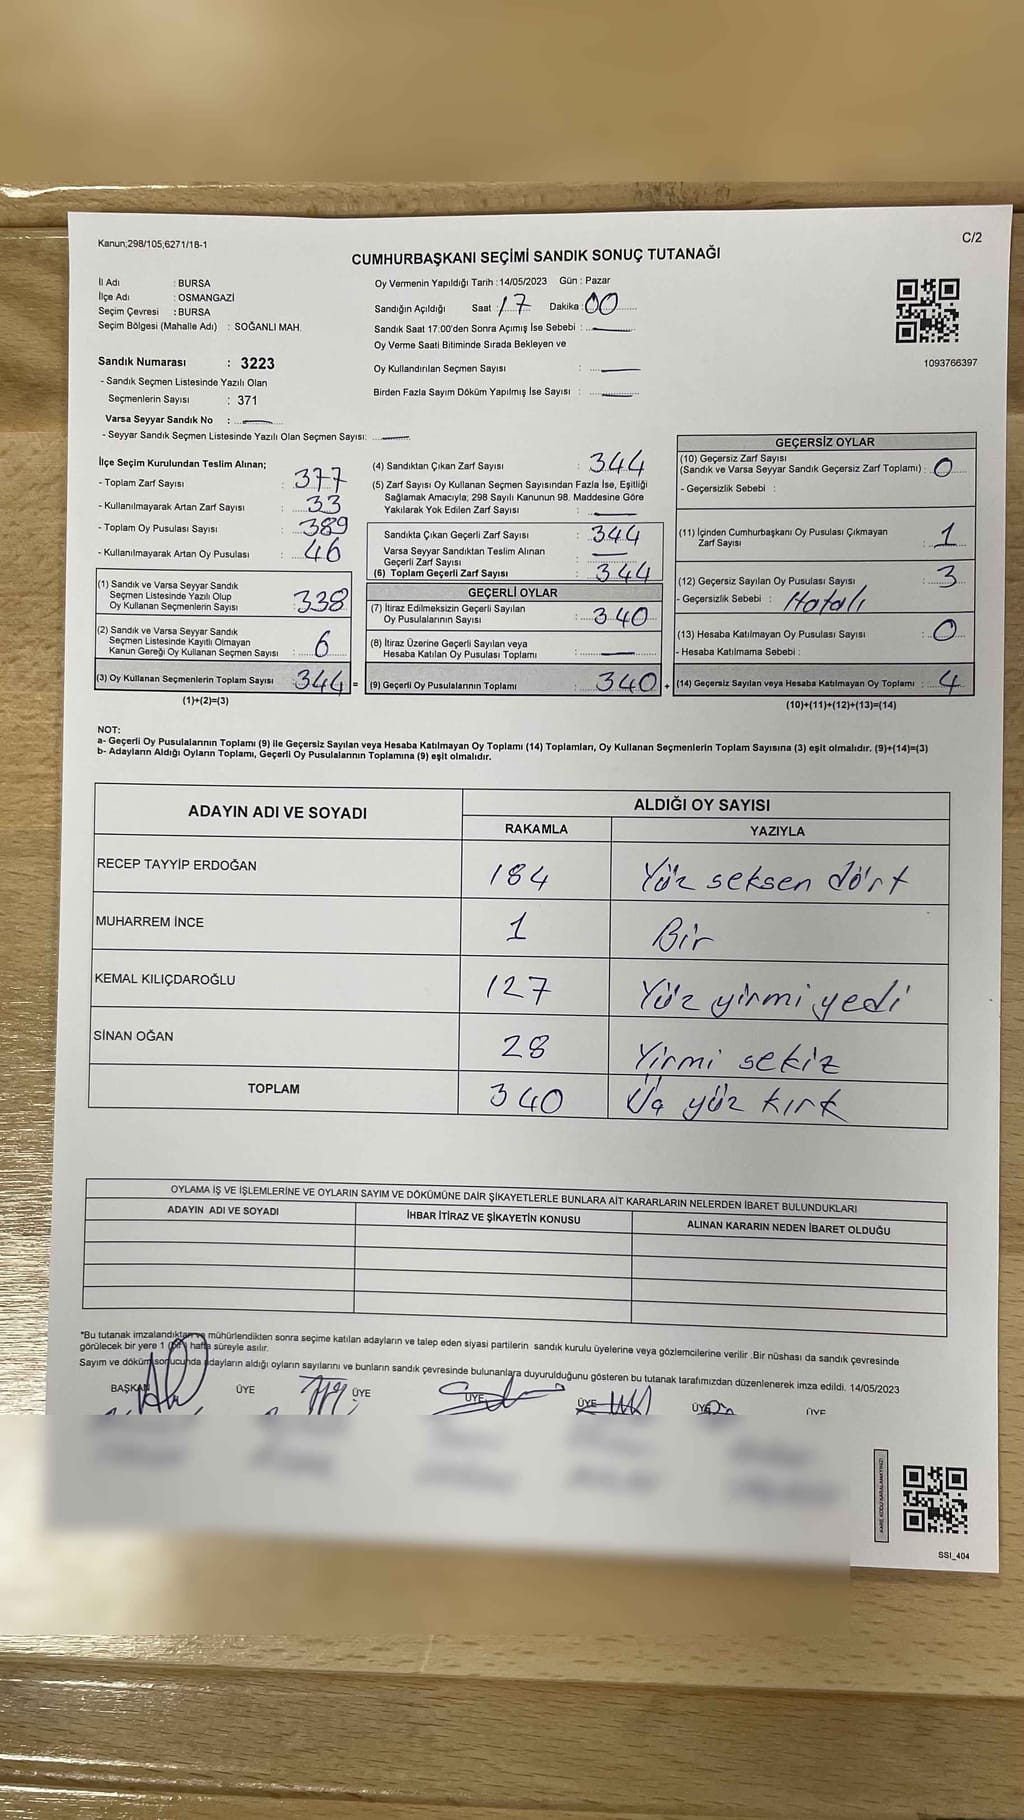 Kanun;298/105,6271/18-1
C/2
CUMHURBAŞKANI SEÇİMİ SANDIK SONUÇ TUTANAĞI
İl Adı : BURSA
İlçe Adı : OSMANGAZİ
Seçim Çevresi : BURSA
Seçim Bölgesi (Mahalle Adı) : SOĞANLI MAH.
Sandık Numarası : 3223
- Sandık Seçmen Listesinde Yazılı Olan
Seçmenlerin Sayısı : 371
Varsa Seyyar Sandık No :
- Seyyar Sandık Seçmen Listesinde Yazılı Olan Seçmen Sayısı:
Oy Vermenin Yapıldığı Tarih :14/05/2023 Gün : Pazar
Sandığın Açıldığı Saat : 17 Dakika : 00
Sandık Saat 17:00'den Sonra Açımış İse Sebebi :
Oy Verme Saati Bitiminde Sırada Bekleyen ve
Oy Kullandırılan Seçmen Sayısı :
Birden Fazla Sayım Döküm Yapılmış İse Sayısı :
1093766397
İlçe Seçim Kurulundan Teslim Alınan;
- Toplam Zarf Sayısı : 377
- Kullanılmayarak Artan Zarf Sayısı : 33
- Toplam Oy Pusulası Sayısı : 389
- Kullanılmayarak Artan Oy Pusulası : 46
(1) Sandık ve Varsa Seyyar Sandık
Seçmen Listesinde Yazılı Olup
Oy Kullanan Seçmenlerin Sayısı : 338
(2) Sandık ve Varsa Seyyar Sandık
Seçmen Listesinde Kayıtlı Olmayan
Kanun Gereği Oy Kullanan Seçmen Sayısı : 6
(3) Oy Kullanan Seçmenlerin Toplam Sayısı : 344 =
(1)+(2)=(3)
(4) Sandıktan Çıkan Zarf Sayısı : 344
(5) Zarf Sayısı Oy Kullanan Seçmen Sayısından Fazla İse, Eşitliği
Sağlamak Amacıyla; 298 Sayılı Kanunun 98. Maddesine Göre
Yakılarak Yok Edilen Zarf Sayısı :
Sandıkta Çıkan Geçerli Zarf Sayısı : 344
Varsa Seyyar Sandıktan Teslim Alınan
Geçerli Zarf Sayısı :
(6) Toplam Geçerli Zarf Sayısı : 344
GEÇERLİ OYLAR
(7) İtiraz Edilmeksizin Geçerli Sayılan
Oy Pusulalarının Sayısı : 340
(8) İtiraz Üzerine Geçerli Sayılan veya
Hesaba Katılan Oy Pusulası Toplamı :
(9) Geçerli Oy Pusulalarının Toplamı : 340 +
GEÇERSİZ OYLAR
(10) Geçersiz Zarf Sayısı
(Sandık ve Varsa Seyyar Sandık Geçersiz Zarf Toplamı) : 0
- Geçersizlik Sebebi :
(11) İçinden Cumhurbaşkanı Oy Pusulası Çıkmayan
Zarf Sayısı : 1
(12) Geçersiz Sayılan Oy Pusulası Sayısı : 3
- Geçersizlik Sebebi : Hatalı
(13) Hesaba Katılmayan Oy Pusulası Sayısı : 0
- Hesaba Katılmama Sebebi :
(14) Geçersiz Sayılan veya Hesaba Katılmayan Oy Toplamı : 4
(10)+(11)+(12)+(13)=(14)
NOT:
a- Geçerli Oy Pusulalarının Toplamı (9) ile Geçersiz Sayılan veya Hesaba Katılmayan Oy Toplamı (14) Toplamları, Oy Kullanan Seçmenlerin Toplam Sayısına (3) eşit olmalıdır. (9)+(14)=(3)
b- Adayların Aldığı Oyların Toplamı, Geçerli Oy Pusulalarının Toplamına (9) eşit olmalıdır.
ADAYIN ADI VE SOYADI ALDIĞI OY SAYISI
RAKAMLA YAZIYLA
RECEP TAYYİP ERDOĞAN 184 Yüz seksen dört
MUHARREM İNCE 1 Bir
KEMAL KILIÇDAROĞLU 127 Yüz yirmi yedi
SİNAN OĞAN 28 Yirmi sekiz
TOPLAM 340 Üç yüz kırk
OYLAMA İŞ VE İŞLEMLERİNE VE OYLARIN SAYIM VE DÖKÜMÜNE DAİR ŞİKAYETLERLE BUNLARA AİT KARARLARIN NELERDEN İBARET BULUNDUKLARI
ADAYIN ADI VE SOYADI İHBAR İTİRAZ VE ŞİKAYETİN KONUSU ALINAN KARARIN NEDEN İBARET OLDUĞU
*Bu tutanak imzalandıktan ve mühürlendikten sonra seçime katılan adayların ve talep eden siyasi partilerin sandık kurulu üyelerine veya gözlemcilerine verilir .Bir nüshası da sandık çevresinde
görülecek bir yere 1 (bir) hafta süreyle asılır.
Sayım ve döküm sonucunda adayların aldığı oyların sayılarını ve bunların sandık çevresinde bulunanlara duyurulduğunu gösteren bu tutanak tarafımızdan düzenlenerek imza edildi. 14/05/2023
BAŞKAN ÜYE ÜYE ÜYE ÜYE ÜYE ÜYE
SSI_404